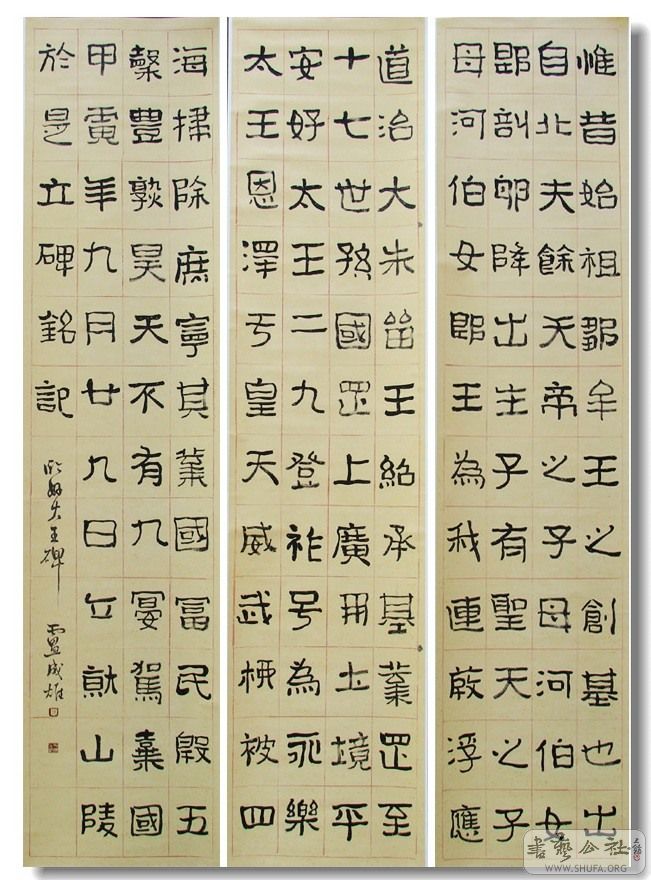 惟昔始祖鄒牟王之創基也出
自北夫餘天帝之子母河伯女
郎剖卵降出生子有聖天之子
母河伯女郎王為我連葭浮應
道治大朱留王紹承基業罡至
十七世孫國罡上廣開土境平
安好太王二九登祚号為永樂
太王恩澤于皇天威武柳被四
海掃除庶寧其業國富民殷五
穀豊熟昊天不有九宴駕棄國
甲寅年九月廿九日乙就山陵
於是立碑銘記
臨好太王碑
成雄
書藝公社
WWW.SHUFA.ORG